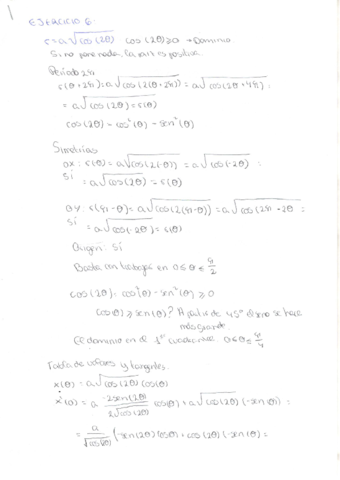 EJERCICIO 6:
r = a√cos(2θ)   cos(2θ) ≥ 0 → Dominio
Si no pone nada, la a es positiva
Periodo 2π
r(θ+2π) = a√cos(2(θ+2π)) = a√cos(2θ+4π) =
= a√cos(2θ) = r(θ)
cos(2θ) = cos²(θ) - sen²(θ)
Simetrías
OX: r(-θ) = a√cos(2(-θ)) = a√cos(-2θ) =
Sí = a√cos(2θ) = r(θ)
OY: r(π-θ) = a√cos(2(π-θ)) = a√cos(2π-2θ) =
Sí = a√cos(-2θ) = r(θ)
Origen: Sí
Basta con trabajar en 0 ≤ θ ≤ π/2
cos(2θ) = cos²(θ) - sen²(θ) ≥ 0
cos(θ) ≥ sen(θ)? A partir de 45° el seno se hace
más grande.
El dominio en el 1er cuadrante 0 ≤ θ ≤ π/4
Tabla de valores y tangentes.
x(θ) = a√cos(2θ) cos(θ)
x'(θ) = a (-2sen(2θ))/(2√cos(2θ)) cos(θ) + a√cos(2θ) (-sen(θ)) =
= a/√cos(2θ) (-sen(2θ) cos(θ) + cos(2θ) (-sen(θ)) =